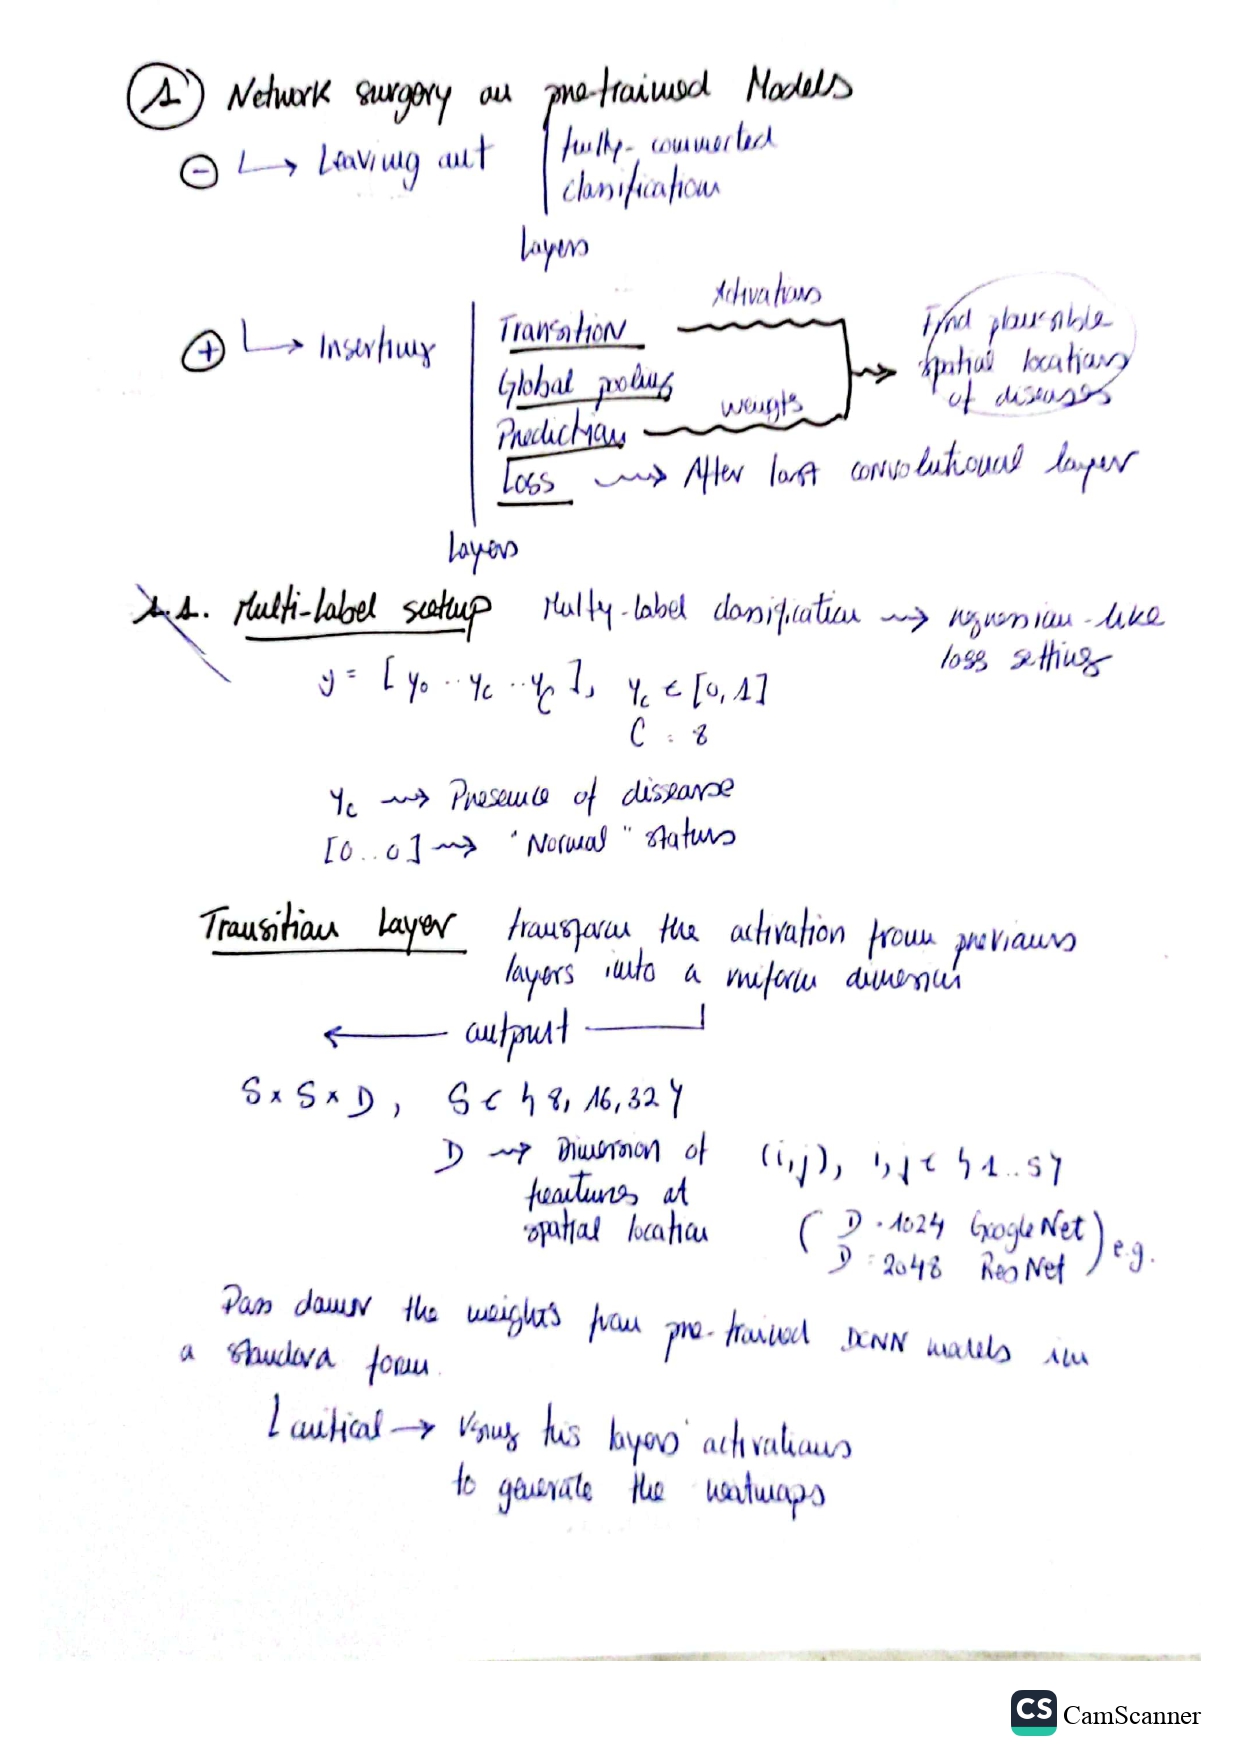 1 Network surgery on pre-trained Models
⊖ ↳ Leaving out | fully-connected
classification
Layers
Activations
⊕ ↳ Inserting | Transition
Find plausible
spatial locations
of diseases
Global pooling
Weights
Prediction
Loss ⇝ After last convolutional layer
Layers
1.1. Multi-Label setup Multy-label classification ⇝ regression-like
loss setting
y = [y₀ .. y_c .. y_C], y_c ∈ [0, 1]
C = 8
y_c ⇝ Presence of disease
[0..0] ⇝ "Normal" status
Transition Layer transform the activation from previous
layers into a uniform dimension
← output
S x S x D, S ∈ {8, 16, 32}
D ⇝ Dimension of (i,j), i,j ∈ {1..S}
features at
spatial location
( D = 1024 GoogleNet
D = 2048 ResNet ) e.g.
Pass down the weights from pre-trained DCNN models in
a standard form.
critical → Using this layers' activations
to generate the heatmaps
CS CamScanner